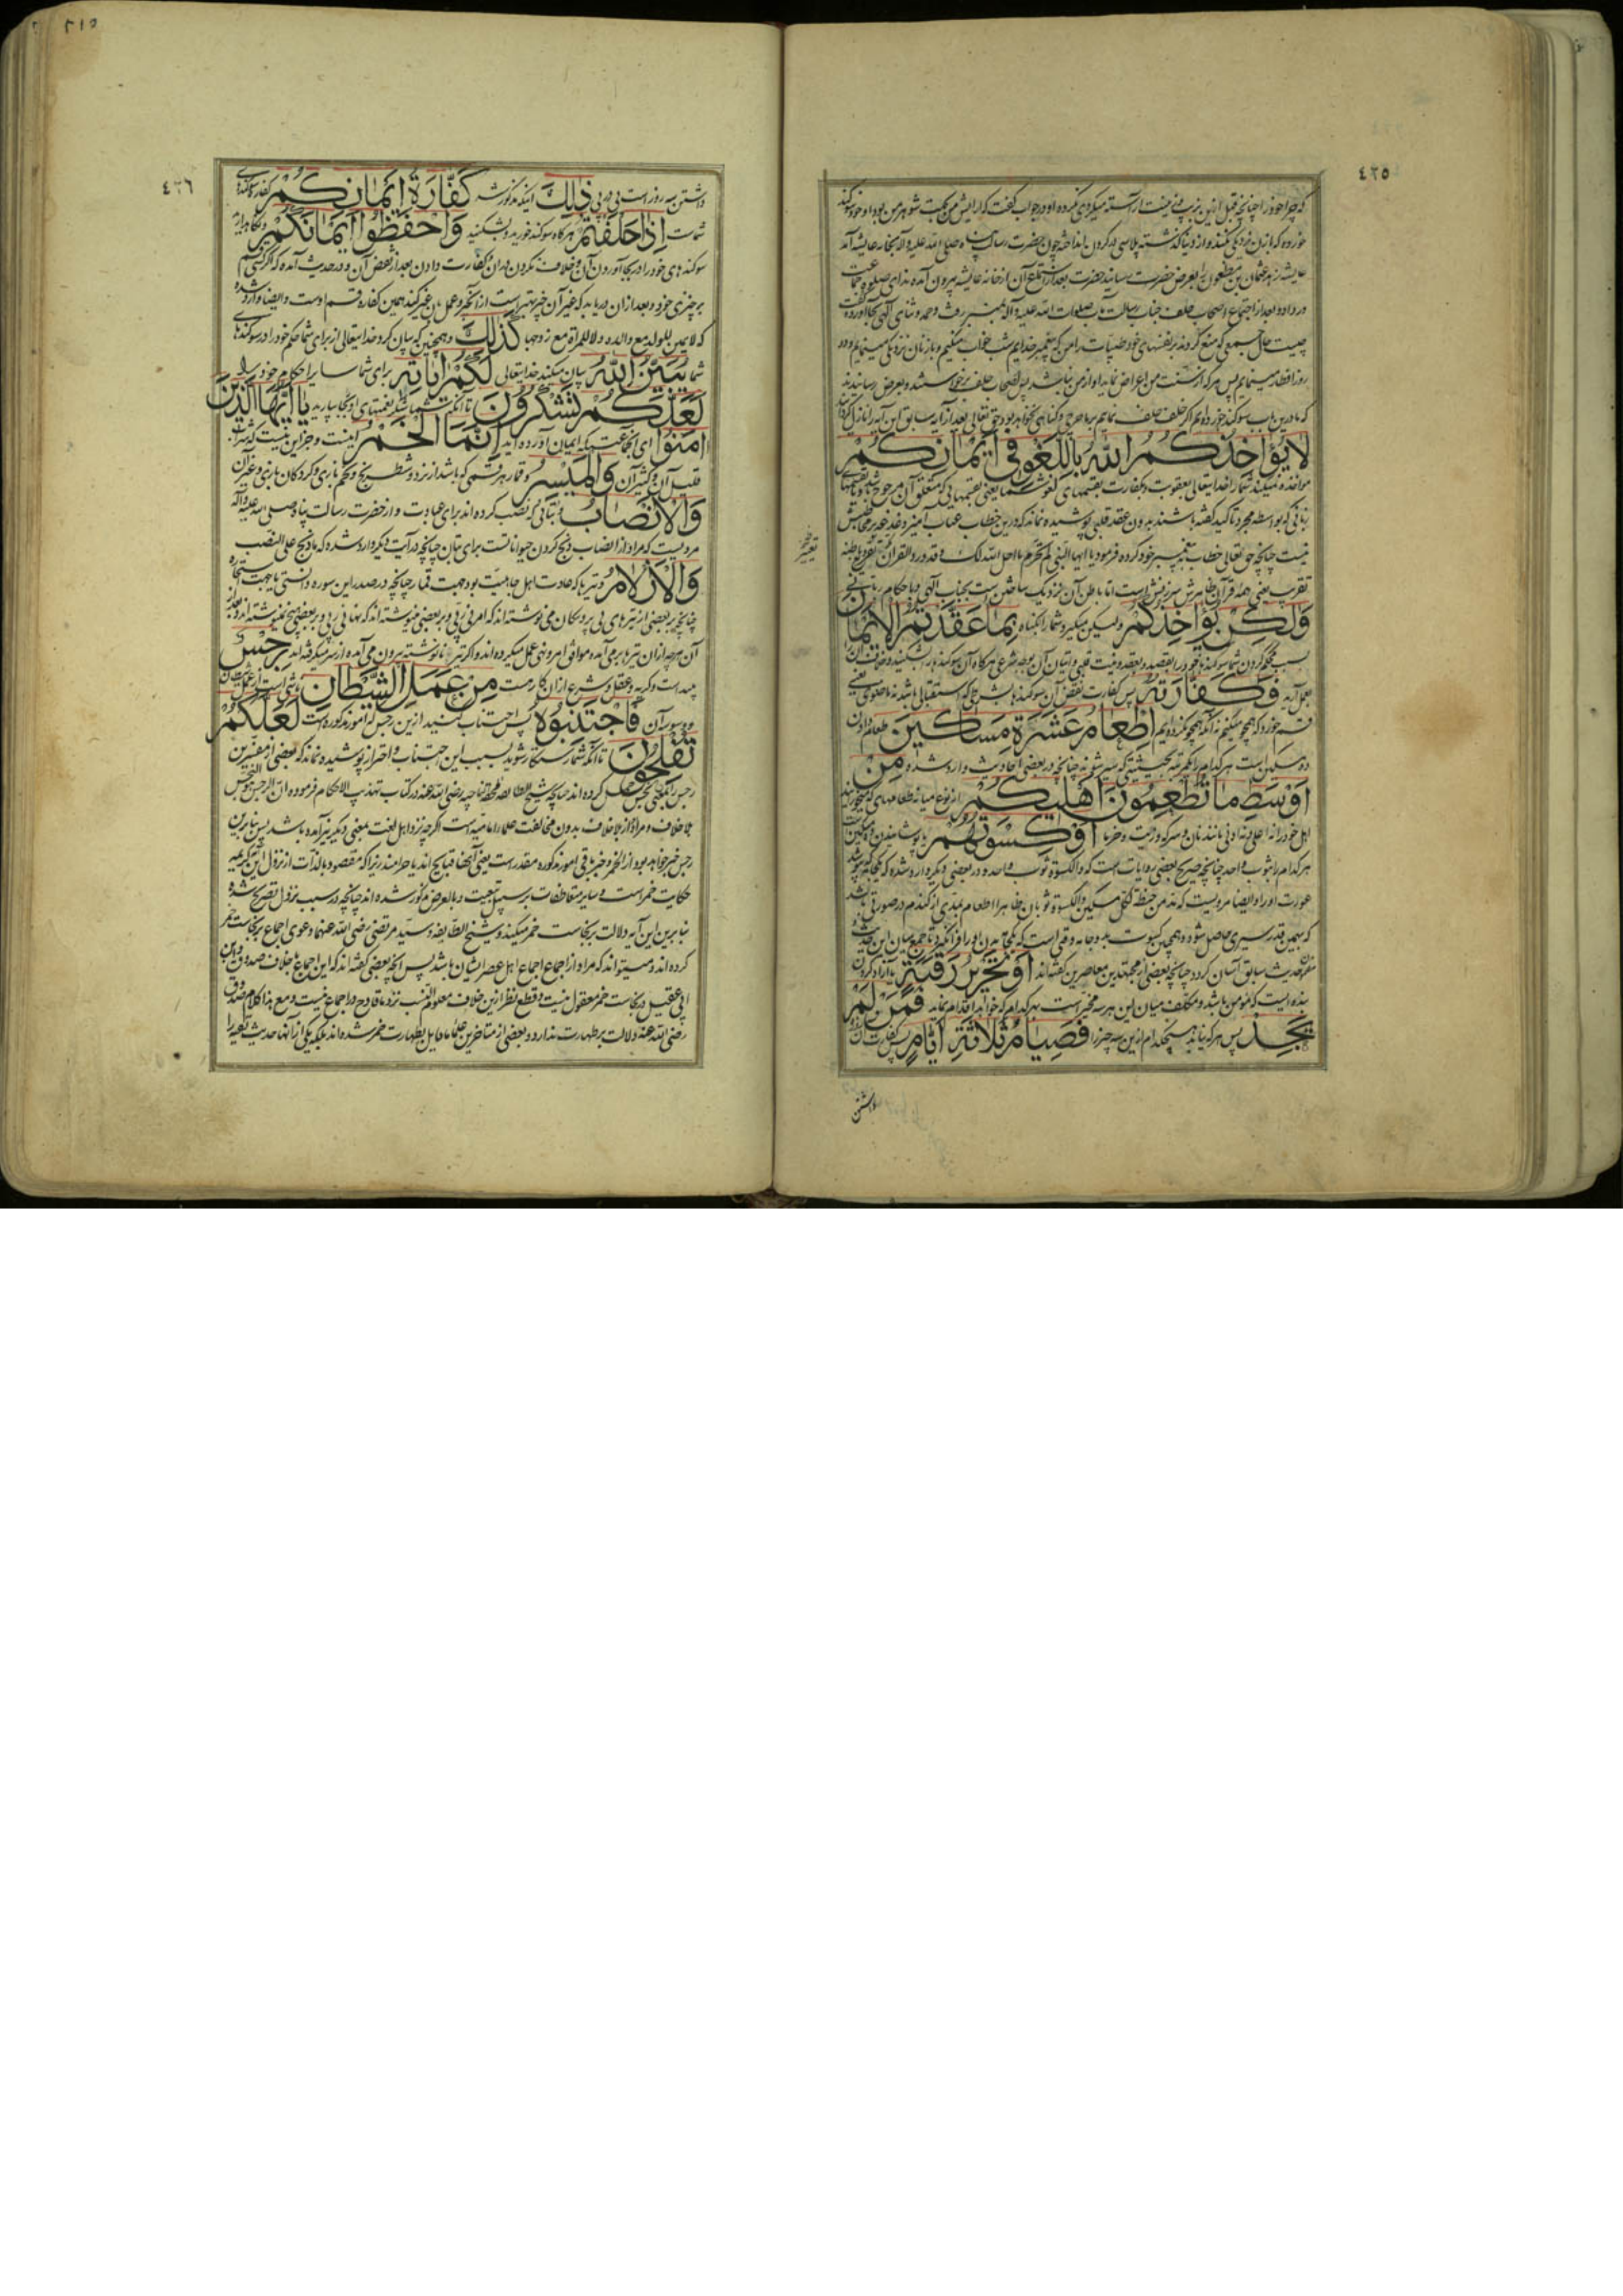 ٤٢٥
که چرا خود را چنانچه قبل ازین بزیب و زینت آراسته میکردی نکرده او در جواب گفت که آرایش من بجهت شوهر من بود او خود سوکند
خورده که با زنان نزدیکی نکند و از دنیا گذشته پلاسی در کردن انداخته چون حضرت رسالت پناه صلی الله علیه و آله بخانه عایشه آمد
عایشه زهد عثمان بن مظعون را بعرض حضرت رسانید حضرت بعد از استماع آن از خانه عایشه بیرون آمده ندای صلوة جماعت
در داد و بعد از اجتماع اصحاب جناب رسالت مآب صلوات الله علیه و آله بمنبر رفت و حمد و ثنای الهی بجا آورده گفت
چیست حال جمعی که منع کردند بر نفسهای خود طیبات را من که پیغمبر خدایم شب خواب میکنم و با زنان نزدیکی مینمایم و در
روز افطار مینمایم پس هر که از سنت من اعراض نماید او از من نباشد پس اصحاب حلف برخواستند و بعرض رسانیدند
که ما درین باب سوکند خورده ایم اگر خلف حلف نمائیم بر ما حرج و کناهی نخواهد بود حق تعالی بعد از آیه سابق این آیه را نازل کردانید
لا یؤاخذکم الله باللغو فی ایمانکم
مواخذه نمیکند شما را خدایتعالی بعقوبت و کفارت بقسمهای لغو شما یعنی بقسمهایی که متعلق آن مرجوح باشد یا قسمهای
زبانی که بواسطه مجرد تاکید گفته باشند بدون عقد قلبی پوشیده نماند که درین خطاب عتاب آمیز
نیست چنانچه حق تعالی خطاب به پیغمبر خود کرده فرمود یا ایها النبی لم تحرم ما احل الله لک و قد ورد القرآن
تقریب یعنی همه قرآن ظاهرش سرزنش است اما باطن آن نزدیک ساختن است بجناب الهی و باحکام ربانی
ولکن یؤاخذکم ولیکن میکیرد شما را بکناه بما عقدتم الایمان
بسبب محکم کردن شما سوکندها خود را بقصد و بعقد و نیت قلبی
بعمل آرید فکفارته پس کفارت نقض آن سوکندها بشرطی که استقبالی باشد نه ماضوی یعنی
قسم خورد که همچو میکنم نه آنکه همچو نکرده ایم اطعام عشرة مساکین طعام دادن
ده مسکین است هر کدام را یکمرتبه بحیثیتی که سیر شوند چنانچه در بعضی احادیث وارد شده من
اوسط ما تطعمون اهلیکم از نوع میانه طعامهای که میخورانید
اهل خود را نه اعلی و نه ادنی مانند نان و سرکه و زیت و خرما او کسوتهم یا پوشانیدن ده مسکین
هر کدام را بثوب واحد چنانچه صریح بعضی روایات است که و الکسوة ثوب واحد و در بعضی دیگر وارد شده که یکجامه که بپوشد
عورت او را و ایضا مرویست که مد من حنطة لکل مسکین و الکسوة ثوبان ظاهرا اطعام بمدی از کندم در صورتی باشد
که بهمین قدر سیری حاصل شود و همچنین کسوت بدو جامه وقتی است که یکجامه بدن او را فرا نکیرد
حدیث سابق آسان کردد چنانچه بعضی از مجتهدین معاصرین گفته اند او تحریر رقبة یا آزاد کردن
بنده ایست که مومن باشد و مکلف میان این هر سه مخیر است بهر کدام که خواهد اقدام نماید فمن لم
یجد پس هر که نیابد هیچکدام ازین سه چیز را فصیام ثلاثة ایام پس کفارت آن
داشتن
٥١٥
٤٢٦
داشتن سه روز است پی در پی ذلک اینکه مذکور شد کفارة ایمانکم کفاره سوکندهای
شماست اذا حلفتم هرگاه سوکند خورید و بشکنید واحفظوا ایمانکم و نگاه دارید
سوکندهای خود را در بجا آوردن آن و خلاف نکردن دران و کفارت دادن بعد از نقض آن و در حدیث آمده که اگر کسی قسم
بر چیزی خورد و بعد ازان دریابد که غیر آن خیر و بهتر است ازان خیر و عمل بان غیر کند همین کفاره قسم اوست و ایضا وارد شده
که لا یمین للولد مع والده و لا للمراة مع زوجها کذلک و همچنین که بیان کرد خدایتعالی از برای شما حکم خود را در سوکندهای
شما یبین الله بیان میکند خدایتعالی لکم ایاته برای شما سایر احکام خود را
لعلکم تشکرون تا آنکه شما شکر نعمتهای او بجا بیارید یا ایها الذین
امنوا ای جماعتیکه ایمان آورده اید انما الخمر اینست و جز این نیست که شراب
قلیل آن و کثیر آن والمیسر و قمار هر قسمی که باشد از نرد و شطرنج و تخم بازی و کردکان بازی و غیر آن
والانصاب و بتانی که نصب کرده اند برای عبادت و از حضرت رسالت پناه صلی الله علیه و آله
مرویست که مراد از انصاب ذبح کردن حیوانات است برای بتان چنانچه در آیت دیگر وارد شده که ما ذبح علی النصب
والازلام و تیرها که عادت اهل جاهلیت بود بجهت قمار چنانچه در صدر این سوره دانستی یا جهت استخاره
چنانچه بر بعضی از تیرهای بی پر و پیکان می نوشته اند که امرنی ربی و بر بعضی مینوشته اند که نهانی ربی و بر بعضی هیچ نمینوشته اند
آن هر چه ازان تیرها بر می آمده موافق امر و نهی عمل میکرده اند و اگر تیر نانوشته بیرون می آمده از سر میکرفته اند رجس
پلید است و کریه و عقل و شرع ازان کاره است من عمل الشیطان ناشی است از عمل شیطان
و وسوسه آن فاجتنبوه پس اجتناب کنید ازین رجس که امور مذکوره است لعلکم
تفلحون تا آنکه شما رستکار شوید بسبب این اجتناب و احتراز پوشیده نماند که بعضی از مفسرین
رجس را بمعنی نجس حمل کرده اند چنانچه شیخ الطایفه رضی الله عنه در کتاب تهذیب الاحکام فرموده ان الرجس هو النجس
بلا خلاف و مراد از لا خلاف بدون مخالفت علماء امامیه است اگر چه نزد اهل لغت بمعنی دیگر نیز آمده باشد پس بنا برین
رجس خبر خواهد بود از الخمر و خبر باقی امور مذکوره مقدر است
حکایت خمر است و سایر متعاطفات بر سبیل تبعیت و بالعرض مذکور شده اند چنانچه در سبب نزول تصریح شده
بنا برین این آیه دلالت بر نجاست خمر میکند و شیخ الطایفه و سید مرتضی رضی الله عنهما دعوی اجماع بر نجاست خمر
کرده اند و میتواند که مراد از اجماع اجماع اهل عصر ایشان باشد پس آنچه بعضی گفته اند که این اجماع با خلاف صدوق و ابن
ابی عقیل در نجاست خمر معقول نیست و قطع نظر ازین خلاف معلوم النسب نزد ما قادح در اجماع نیست و مع هذا کلام صدوق
رضی الله عنه دلالت بر طهارت ندارد و بعضی از متاخرین علماء ما قایل بطهارت خمر شده اند